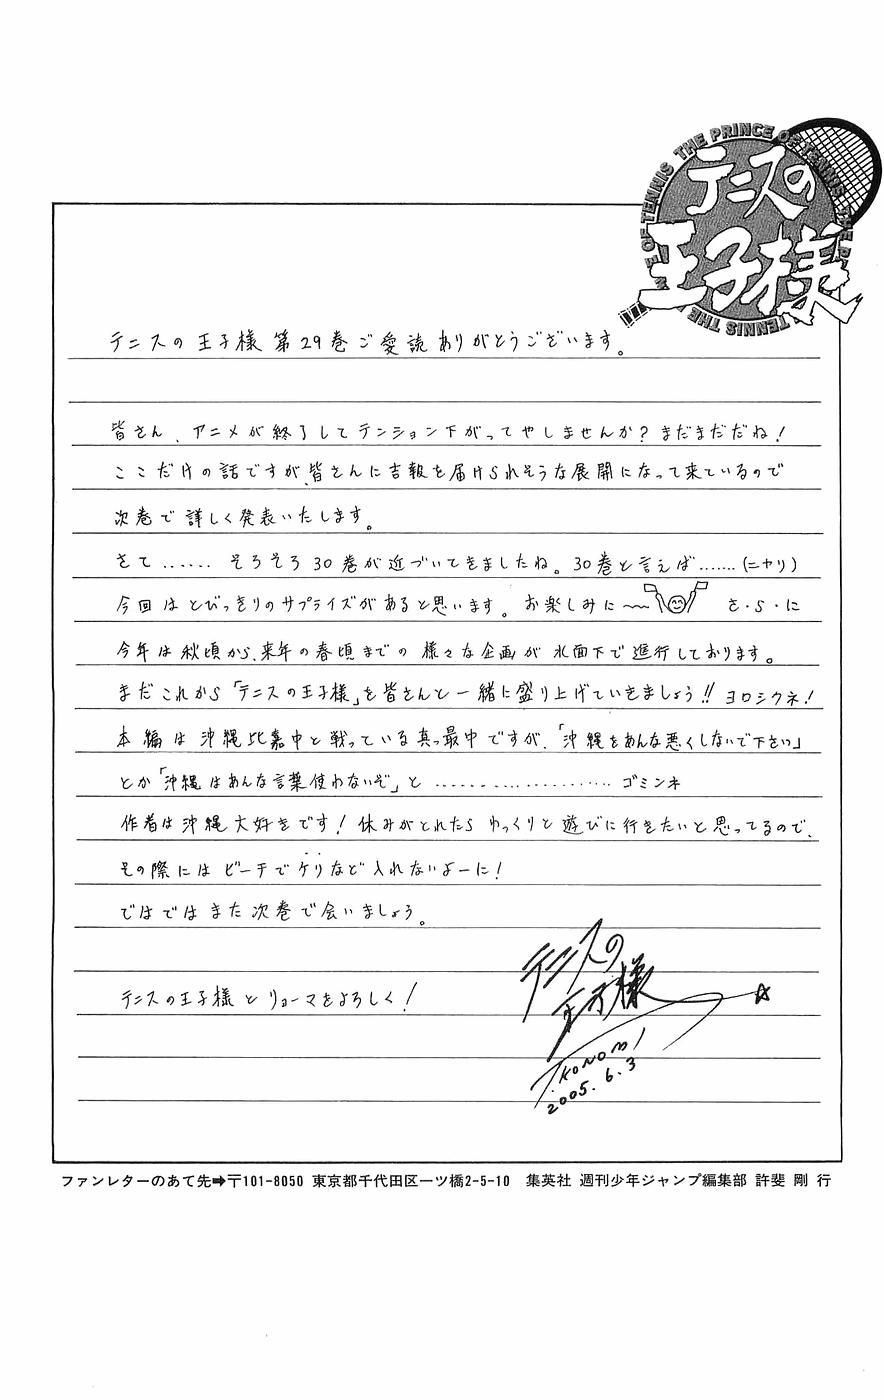 THE PRINCE OF TENNIS THE PRINCE OF TENNIS
テニスの
王子様
テニスの王子様 第29巻ご愛読ありがとうございます。
皆さん、アニメが終了してテンション下がってやしませんか?まだまだだね!
ここだけの話ですが、皆さんに吉報を届けられそうな展開になって来ているので
次巻で詳しく発表いたします。
さて…… そろそろ30巻が近づいてきましたね。30巻と言えば……(ニヤリ)
今回はとびっきりのサプライズがあると思います。お楽しみに〜〜 さ・ら・に
今年は秋頃から、来年の春頃までの様々な企画が水面下で進行しております。
まだこれから「テニスの王子様」を皆さんと一緒に盛り上げていきましょう!!ヨロシクネ!
本編は沖縄比嘉中と戦っている真っ最中ですが、「沖縄をあんな悪くしないで下さい」
とか「沖縄はあんな言葉使わないぞ」と ………………… ゴミンネ
作者は沖縄大好きです!休みがとれたらゆっくりと遊びに行きたいと思ってるので、
その際にはビーチでケリなど入れないよーに!
ではではまた次巻で会いましょう。
テニスの王子様とリョーマをよろしく!
テニスの
王子様
T.KONOMI
2005.6.3
ファンレターのあて先➡〒101-8050 東京都千代田区一ツ橋2-5-10 集英社 週刊少年ジャンプ編集部 許斐 剛 行